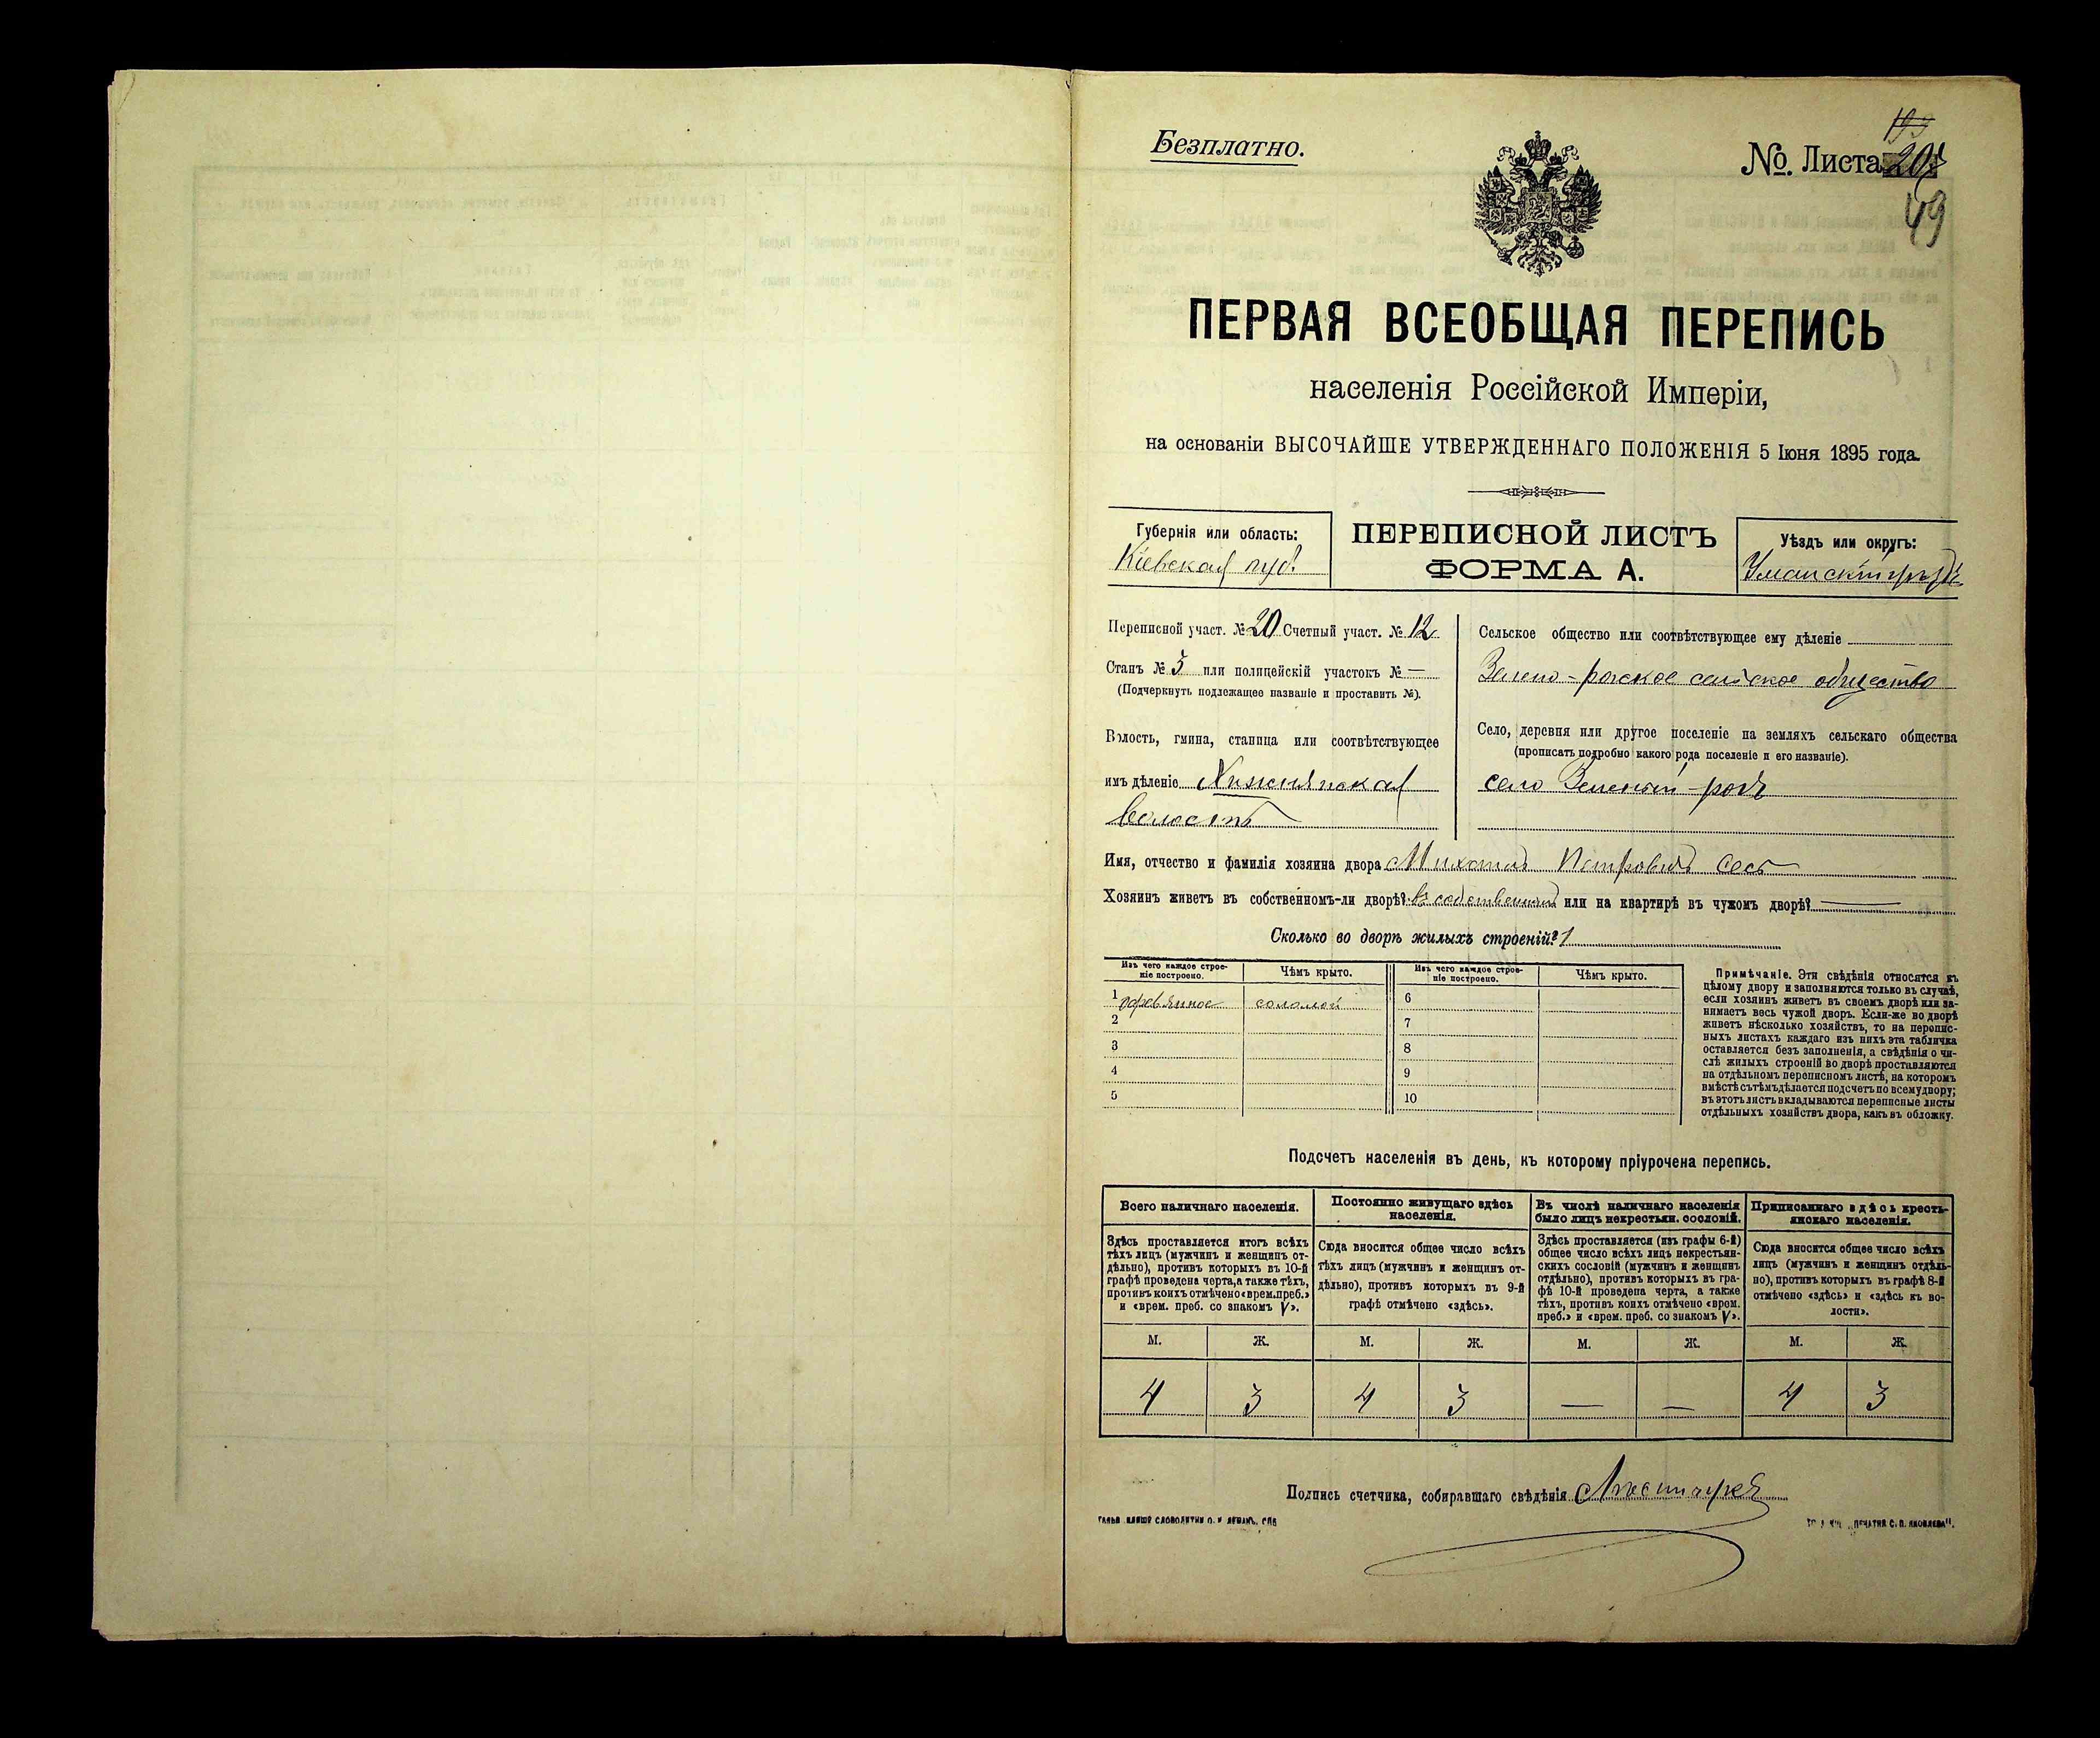 Безплатно.
№. Листа
49
ПЕРВАЯ ВСЕОБЩАЯ ПЕРЕПИСЬ
населенія Россійской Имперіи,
на основаніи ВЫСОЧАЙШЕ УТВЕРЖДЕННАГО ПОЛОЖЕНІЯ 5 Іюня 1895 года.
Губернія или область:
Кіевская губ.
ПЕРЕПИСНОЙ ЛИСТЪ
ФОРМА А.
Уѣздъ или округъ:
Уманскій уѣздъ
Переписной участ. № 20 Счетный участ. № 12
Станъ № 3 или полицейскій участокъ № —
(Подчеркнуть подлежащее названіе и проставить №).
Волость, гмина, станица или соотвѣтствующее
имъ дѣленіе
волость
Сельское общество или соотвѣтствующее ему дѣленіе
Зелено-рогское сельское общество
Село, деревня или другое поселеніе на земляхъ сельскаго общества
(прописать подробно какого рода поселеніе и его названіе).
село Зеленый-рогъ
Имя, отчество и фамилія хозяина двора Михаилъ Петровичъ
Хозяинъ живетъ въ собственномъ-ли дворѣ? въ собственномъ или на квартирѣ въ чужомъ дворѣ? —
Сколько во дворѣ жилыхъ строеній? 1
Изъ чего каждое строеніе построено.
Чѣмъ крыто.
Изъ чего каждое строеніе построено.
Чѣмъ крыто.
1 деревянное соломой 6
2 7
3 8
4 9
5 10
Примѣчаніе. Эти свѣдѣнія относятся къ
цѣлому двору и заполняются только въ случаѣ,
если хозяинъ живетъ въ своемъ дворѣ или за-
нимаетъ весь чужой дворъ. Если-же во дворѣ
живетъ нѣсколько хозяйствъ, то на перепис-
ныхъ листахъ каждаго изъ нихъ эта табличка
оставляется безъ заполненія, а свѣдѣнія о чи-
слѣ жилыхъ строеній во дворѣ проставляются
на отдѣльномъ переписномъ листѣ, на которомъ
вмѣстѣ съ тѣмъ дѣлается подсчетъ по всему двору;
въ этотъ листъ вкладываются переписные листы
отдѣльныхъ хозяйствъ двора, какъ въ обложку.
Подсчетъ населенія въ день, къ которому пріурочена перепись.
Всего наличнаго населенія.
Постоянно живущаго здѣсь
населенія.
Въ числѣ наличнаго населенія
было лицъ некрестьян. сословій.
Приписаннаго здѣсь кресть-
янскаго населенія.
Здѣсь проставляется итогъ всѣхъ
тѣхъ лицъ (мужчинъ и женщинъ от-
дѣльно), противъ которыхъ въ 10-й
графѣ проведена черта, а также тѣхъ,
противъ коихъ отмѣчено «врем. преб.»
и «врем. преб. со знакомъ V».
Сюда вносится общее число всѣхъ
тѣхъ лицъ (мужчинъ и женщинъ от-
дѣльно), противъ которыхъ въ 9-й
графѣ отмѣчено «здѣсь».
Здѣсь проставляется (изъ графы 6-й)
общее число всѣхъ лицъ некрестьян-
скихъ сословій (мужчинъ и женщинъ
отдѣльно), противъ которыхъ въ гра-
фѣ 10-й проведена черта, а также
тѣхъ, противъ коихъ отмѣчено «врем.
преб.» и «врем. преб. со знакомъ V».
Сюда вносится общее число всѣхъ
лицъ (мужчинъ и женщинъ отдѣль-
но), противъ которыхъ въ графѣ 8-й
отмѣчено «здѣсь» и «здѣсь къ во-
лости».
М. Ж. М. Ж. М. Ж. М. Ж.
4 3 4 3 — — 4 3
Подпись счетчика, собиравшаго свѣдѣнія